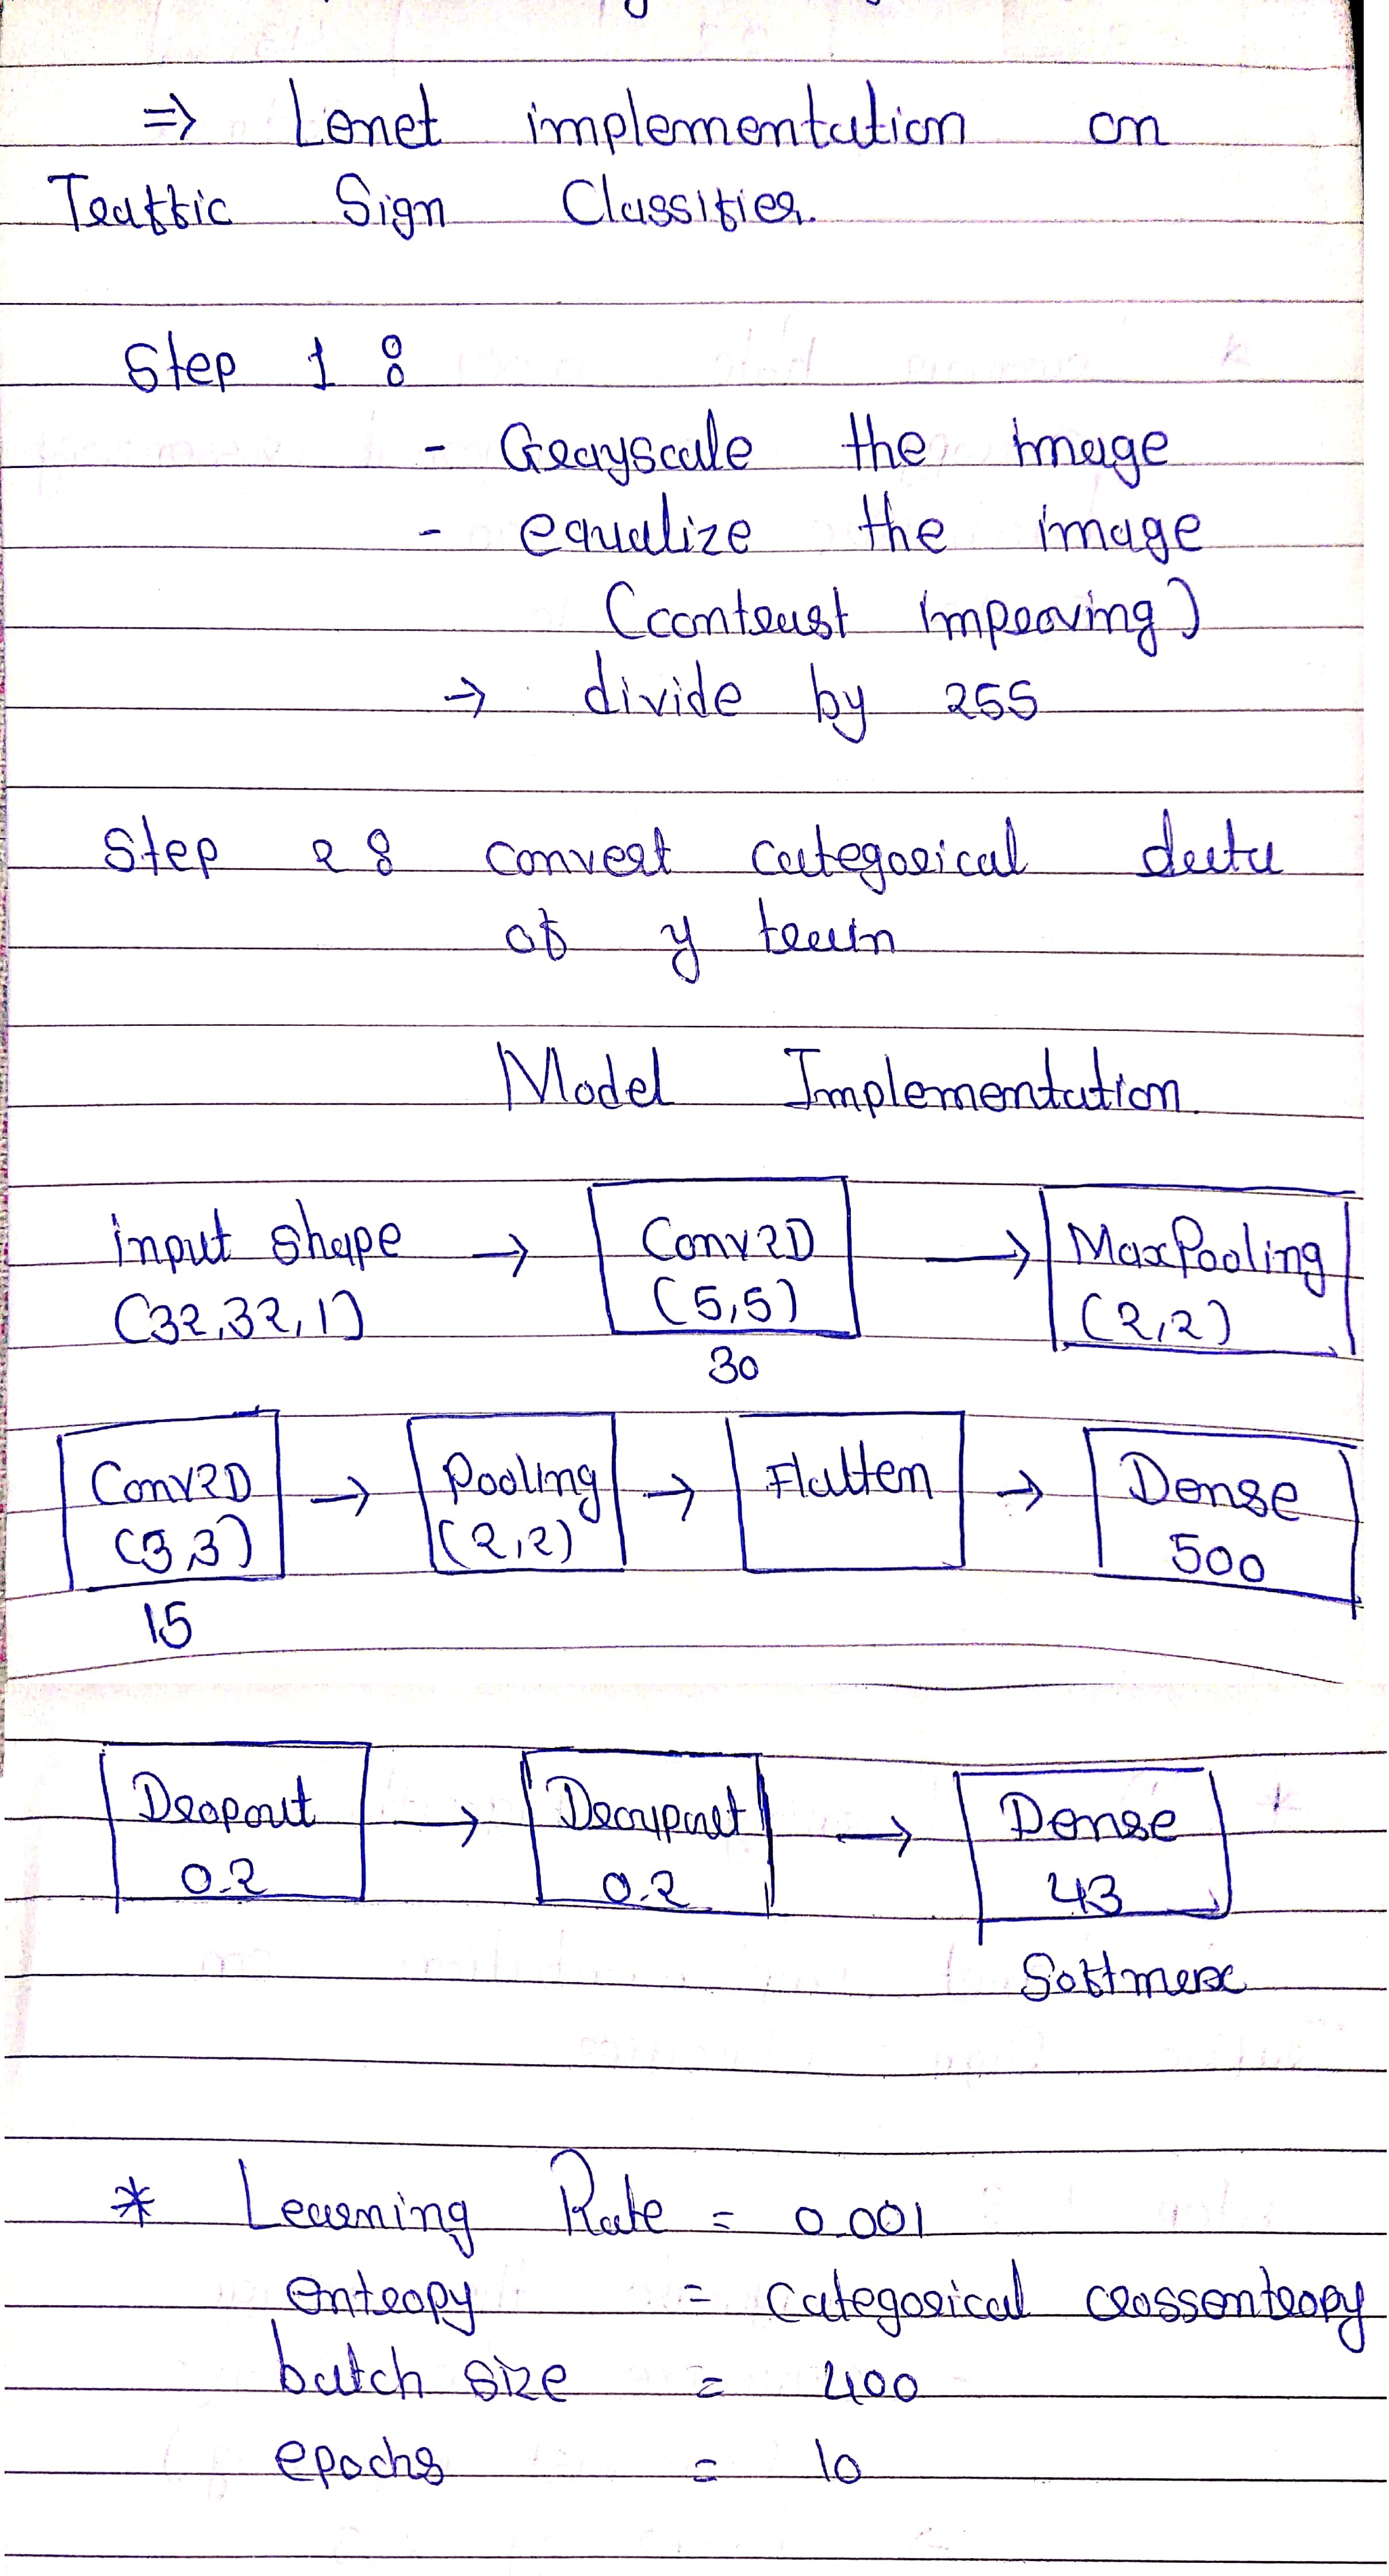 ⇒ Lenet implementation on
Traffic Sign Classifier.
Step 1 :
- Grayscale the image
- equalize the image
(contrast improving)
→ divide by 255
Step 2 : convert categorical data
of y train
Model Implementation.
input shape → Conv2D → MaxPooling
(32,32,1) (5,5) (2,2)
30
Conv2D → Pooling → Flatten → Dense
(3,3) (2,2) 500
15
Dropout → Dropout → Dense
0.2 0.2 43
Softmax
* Learning Rate = 0.001
entropy = categorical crossentropy
batch size = 400
epochs = 10